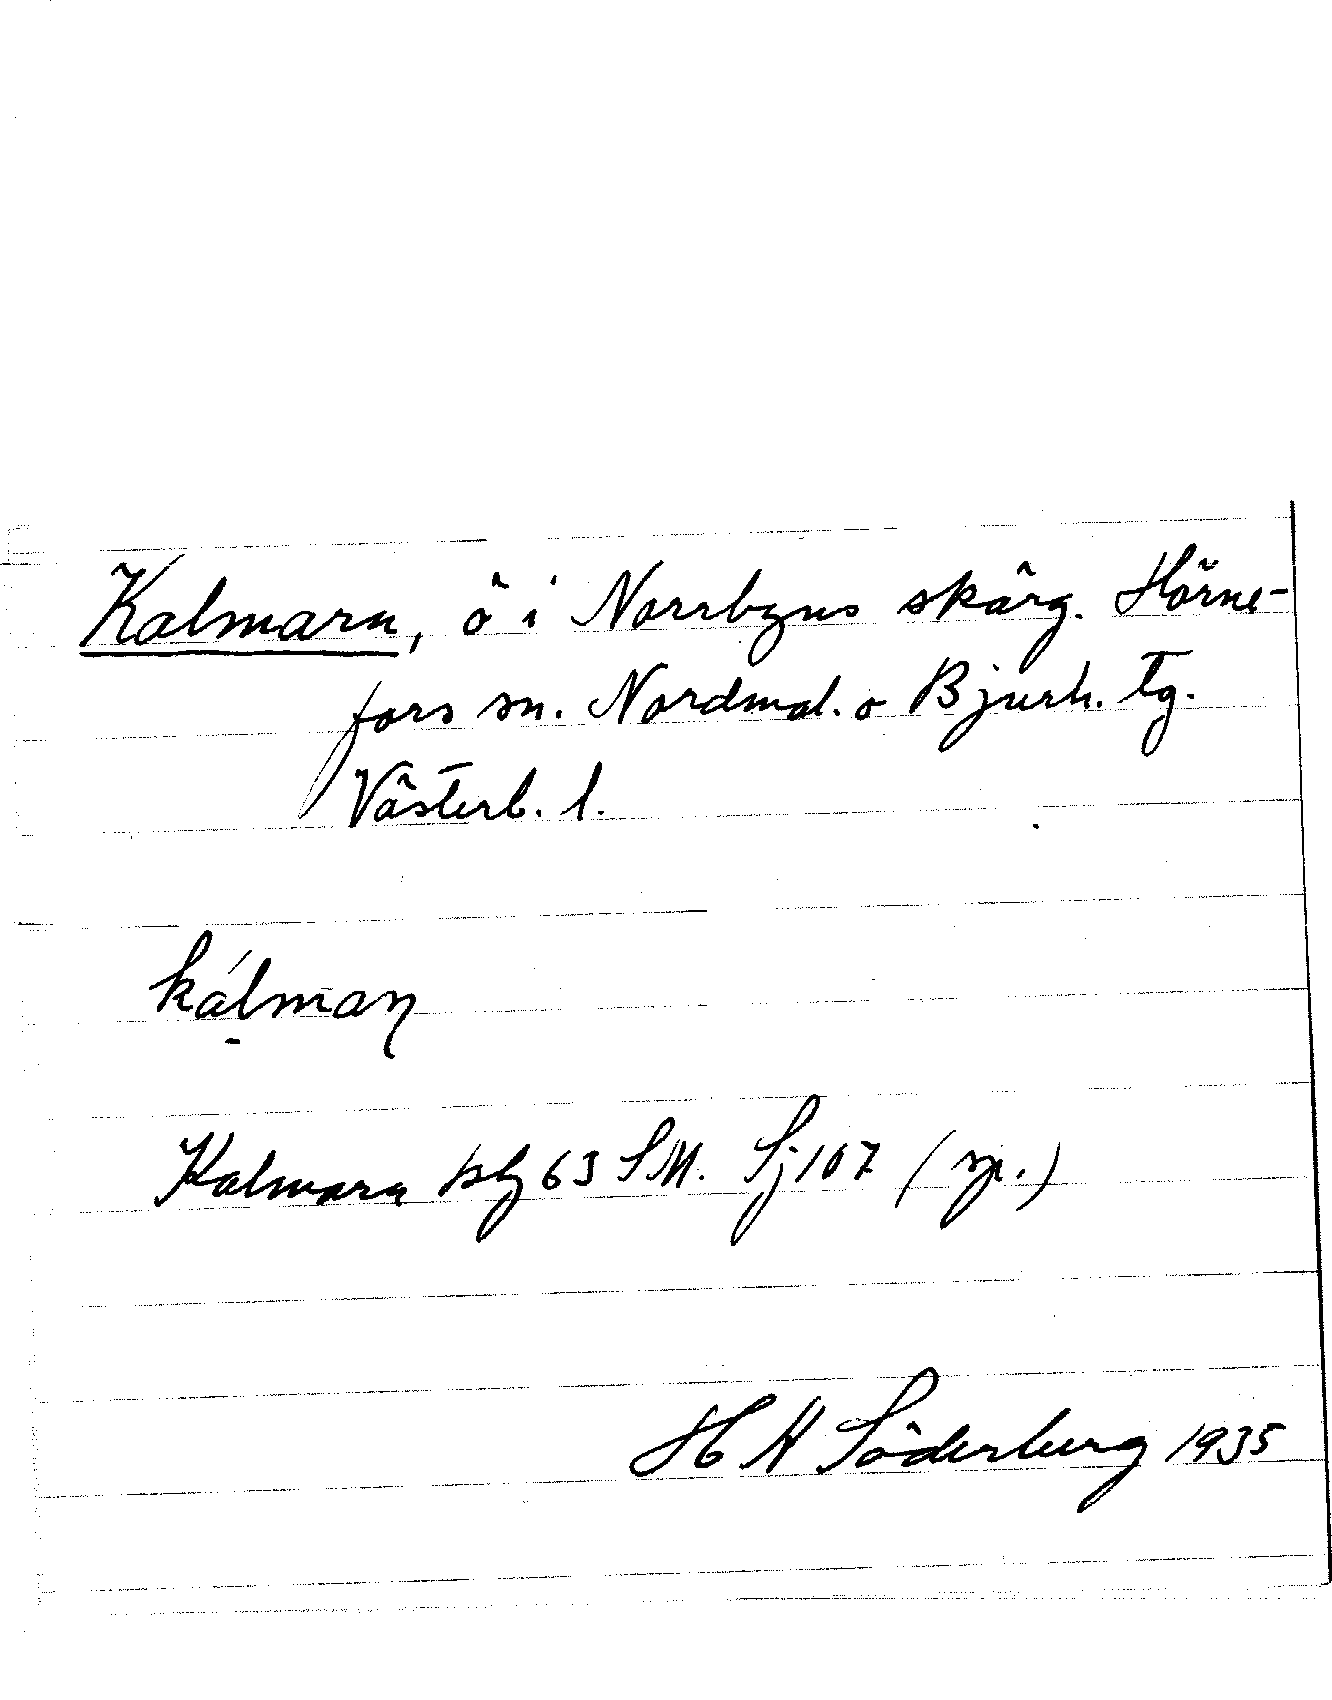 Kalmarn, ö i Norrbyns skärg. Hörne-
fors sn. Nordmal. o Bjurh. tg.
Västerb. l.
kálmaꞃ
Kalmarn bl 63 SM. Sj 107 (  )
H H Söderberg 1935